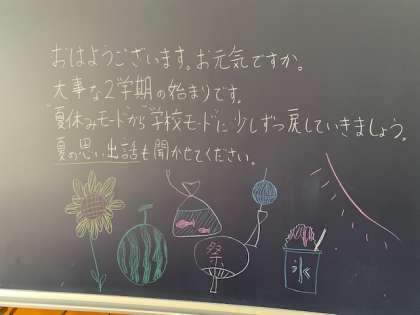 おはようございます。お元気ですか。
大事な2学期の始まりです。
"夏休みモード"から"学校モード"に少しずつ戻していきましょう。
夏の思い出話も聞かせてください。
祭
氷